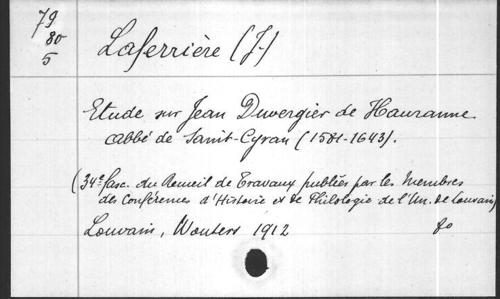 79
80
5
Laferrière (J.)
Etude sur Jean Duvergier de Hauranne
abbé de Saint-Cyran (1581-1643).
(34e fasc. du Recueil de Travaux publiés par les Membres
des Conférences d'Histoire et de Philologie de l'Un. de Louvain)
Louvain, Wouters 1912